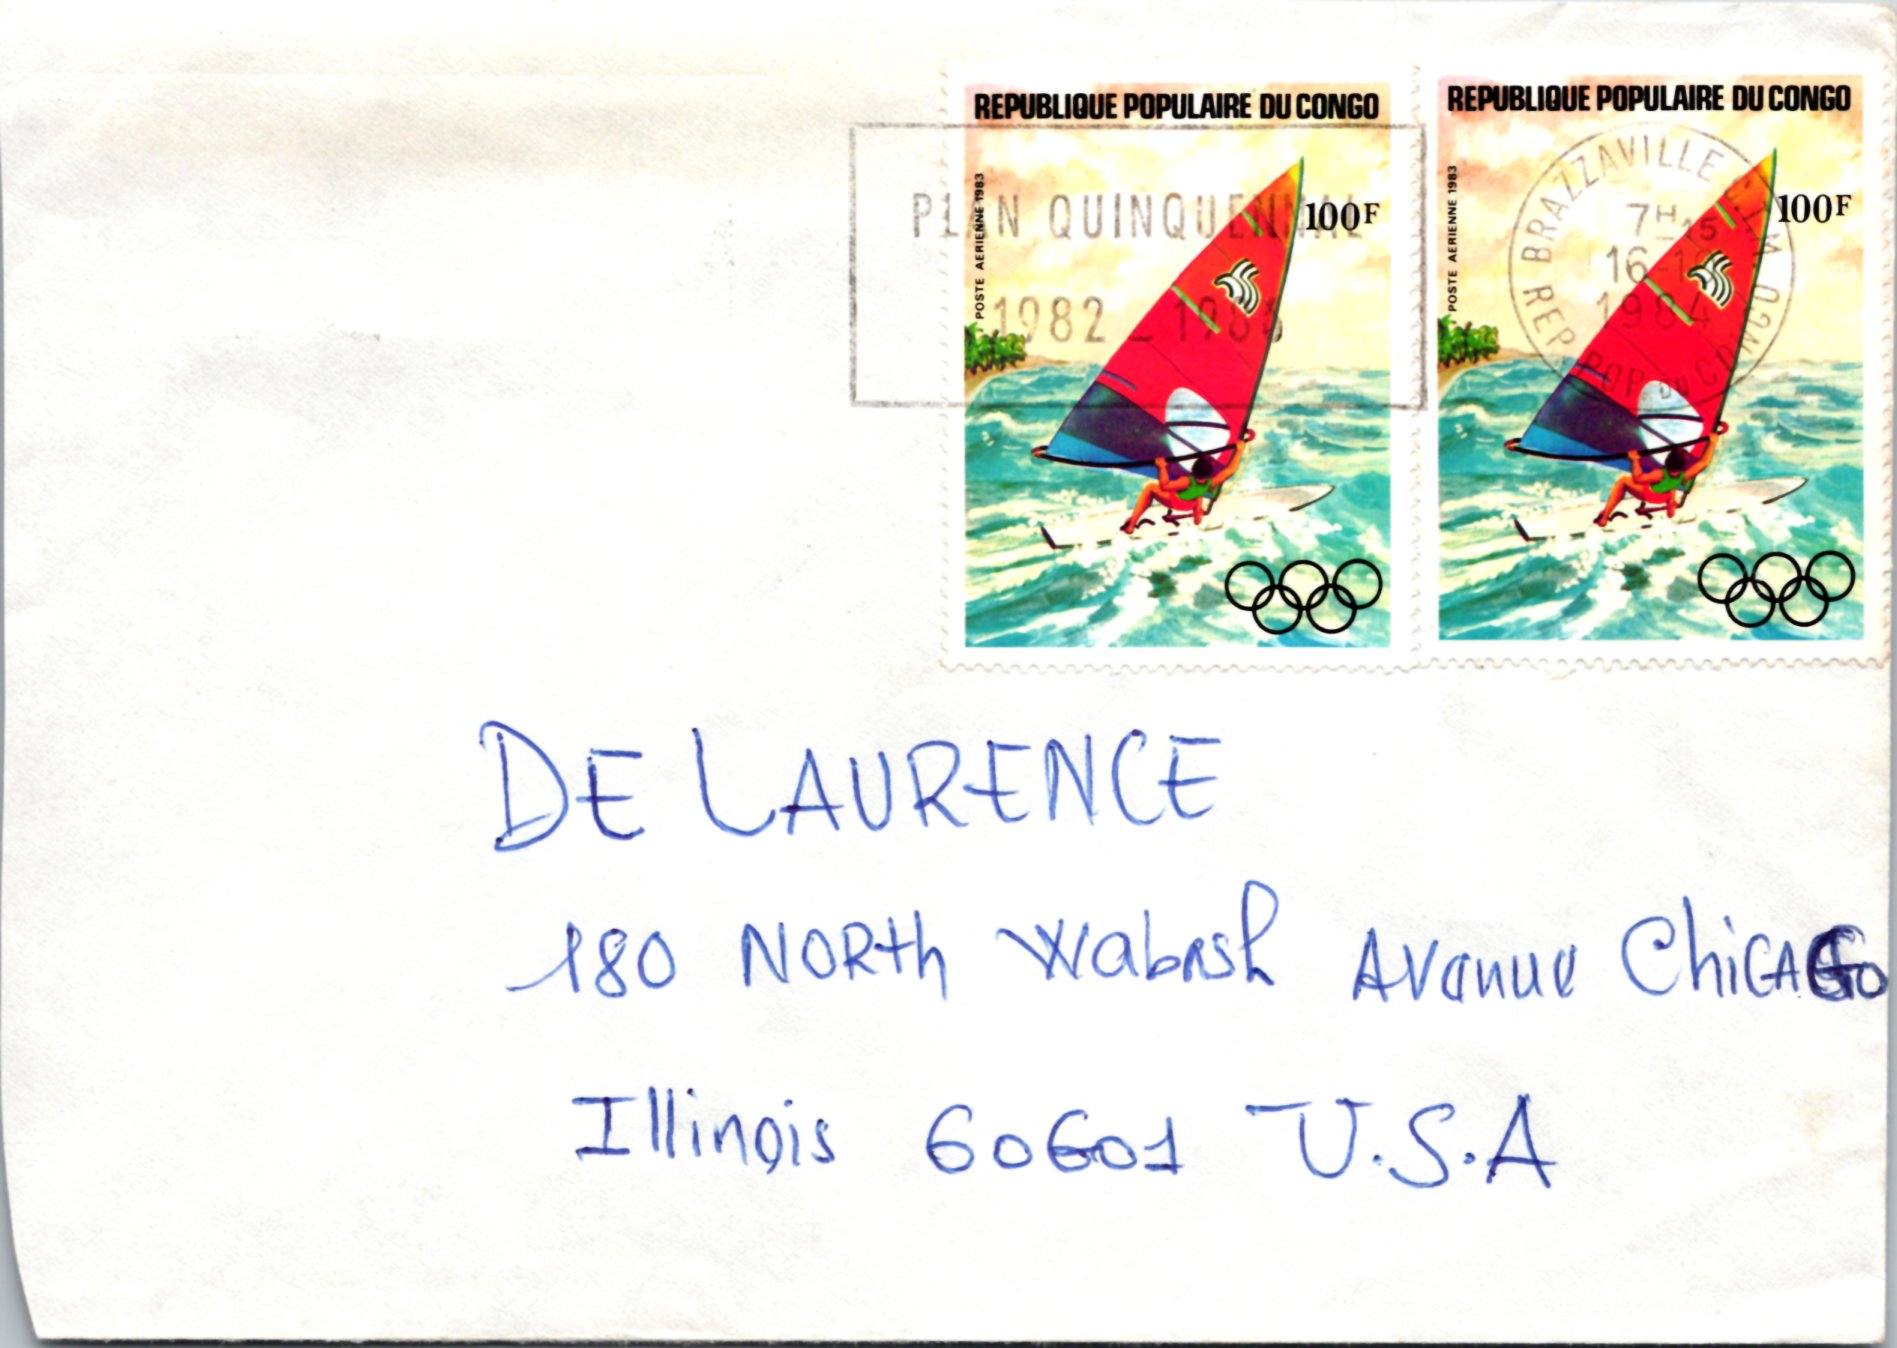 REPUBLIQUE POPULAIRE DU CONGO
POSTE AERIENNE 1983
100F
REPUBLIQUE POPULAIRE DU CONGO
POSTE AERIENNE 1983
100F
PLAN QUINQUENNAL
1982 _ 1986
BRAZZAVILLE
7H15
16
1984
REP POP DU CONGO
DE LAURENCE
180 NORth Wabash Avanue ChiCAGo
Illinois 60601 U.S.A